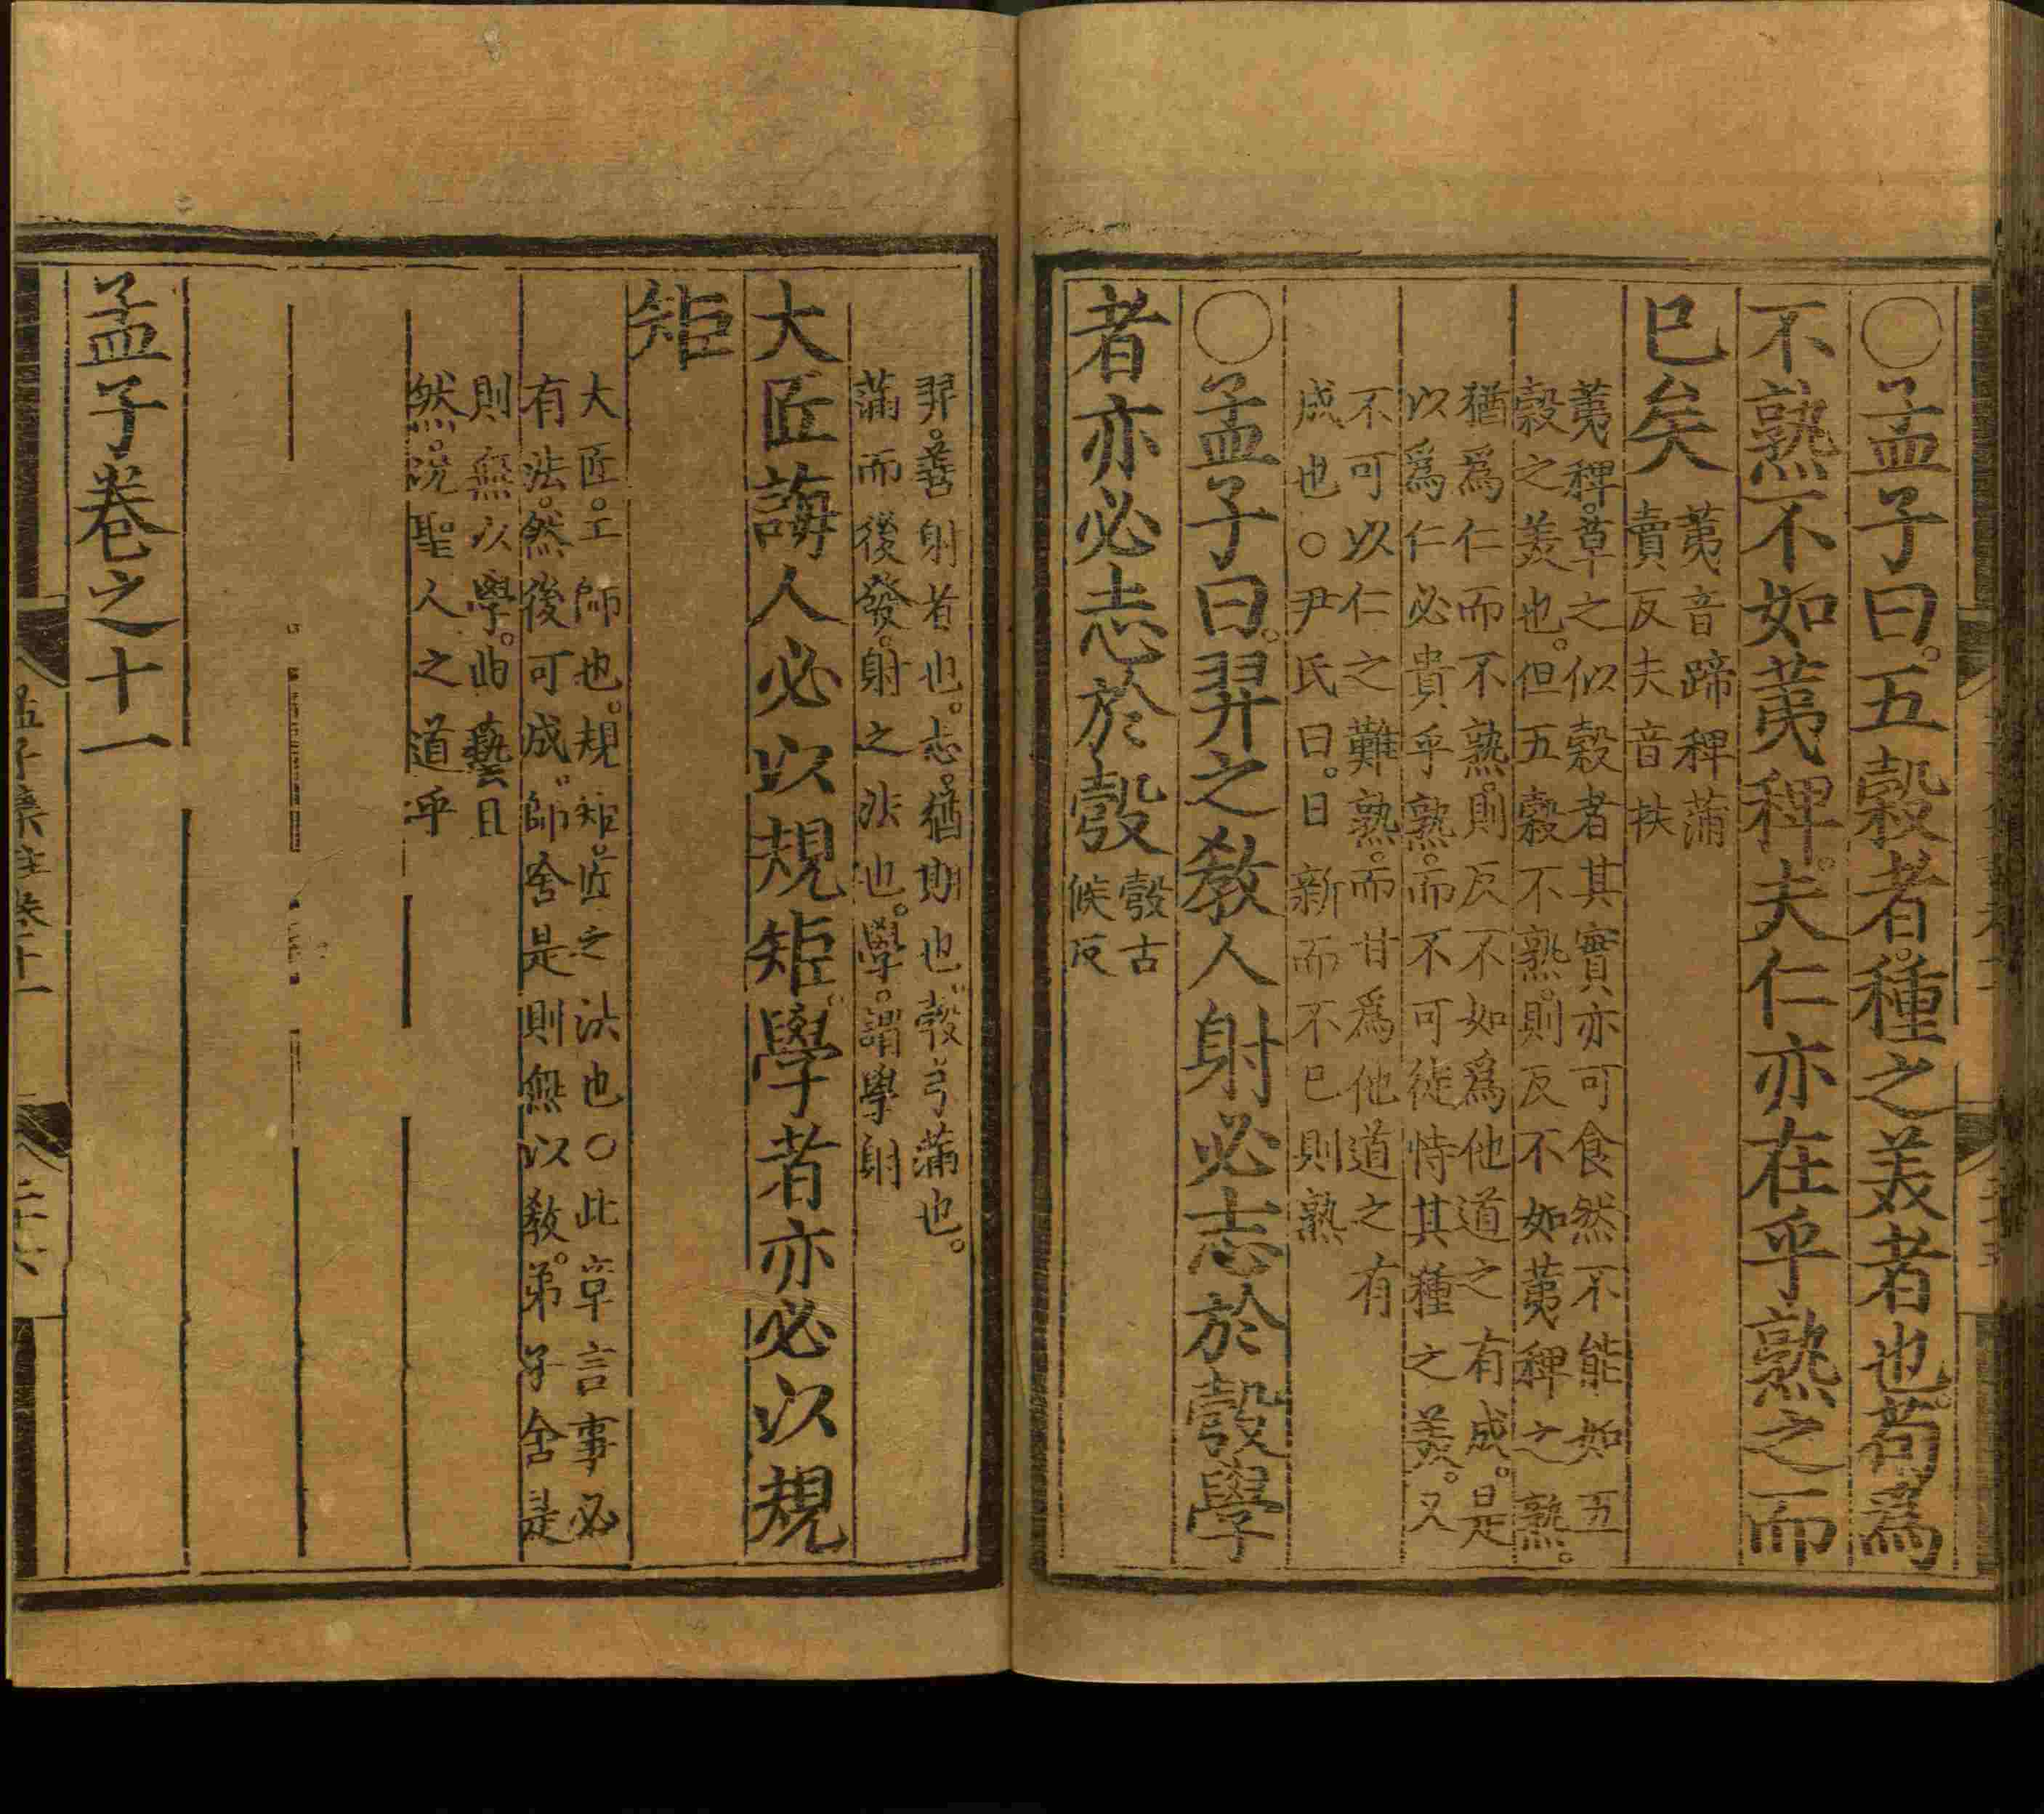 ○孟子曰。五穀者。種之美者也。苟爲
不熟不如荑稗。夫仁亦在乎熟之而
已矣
荑音蹄稗蒲
賣反夫音扶
荑稗。草之似穀者其實亦可食然不能如五
穀之美也。但五穀不熟。則反不如荑稗之熟。
猶爲仁而不熟。則反不如爲他道之有成。是
以爲仁必貴乎熟。而不可徒恃其種之美。又
不可以仁之難熟。而甘爲他道之有
成也。○尹氏曰。日新而不已則熟
○孟子曰。羿之敎人射必志於彀學
者亦必志於彀
彀古
候反
羿。善射者也。志。猶期也。彀。弓滿也。
滿而後發。射之法也。學。謂學射
大匠誨人必以規矩。學者亦必以規
矩
大匠。工師也。規矩。匠之法也○此章言事必
有法。然後可成。師舍是則無以敎。弟子舍是
則無以學。曲藝且
然。况聖人之道乎
孟子卷之十一
孟子集註卷十一 二十六